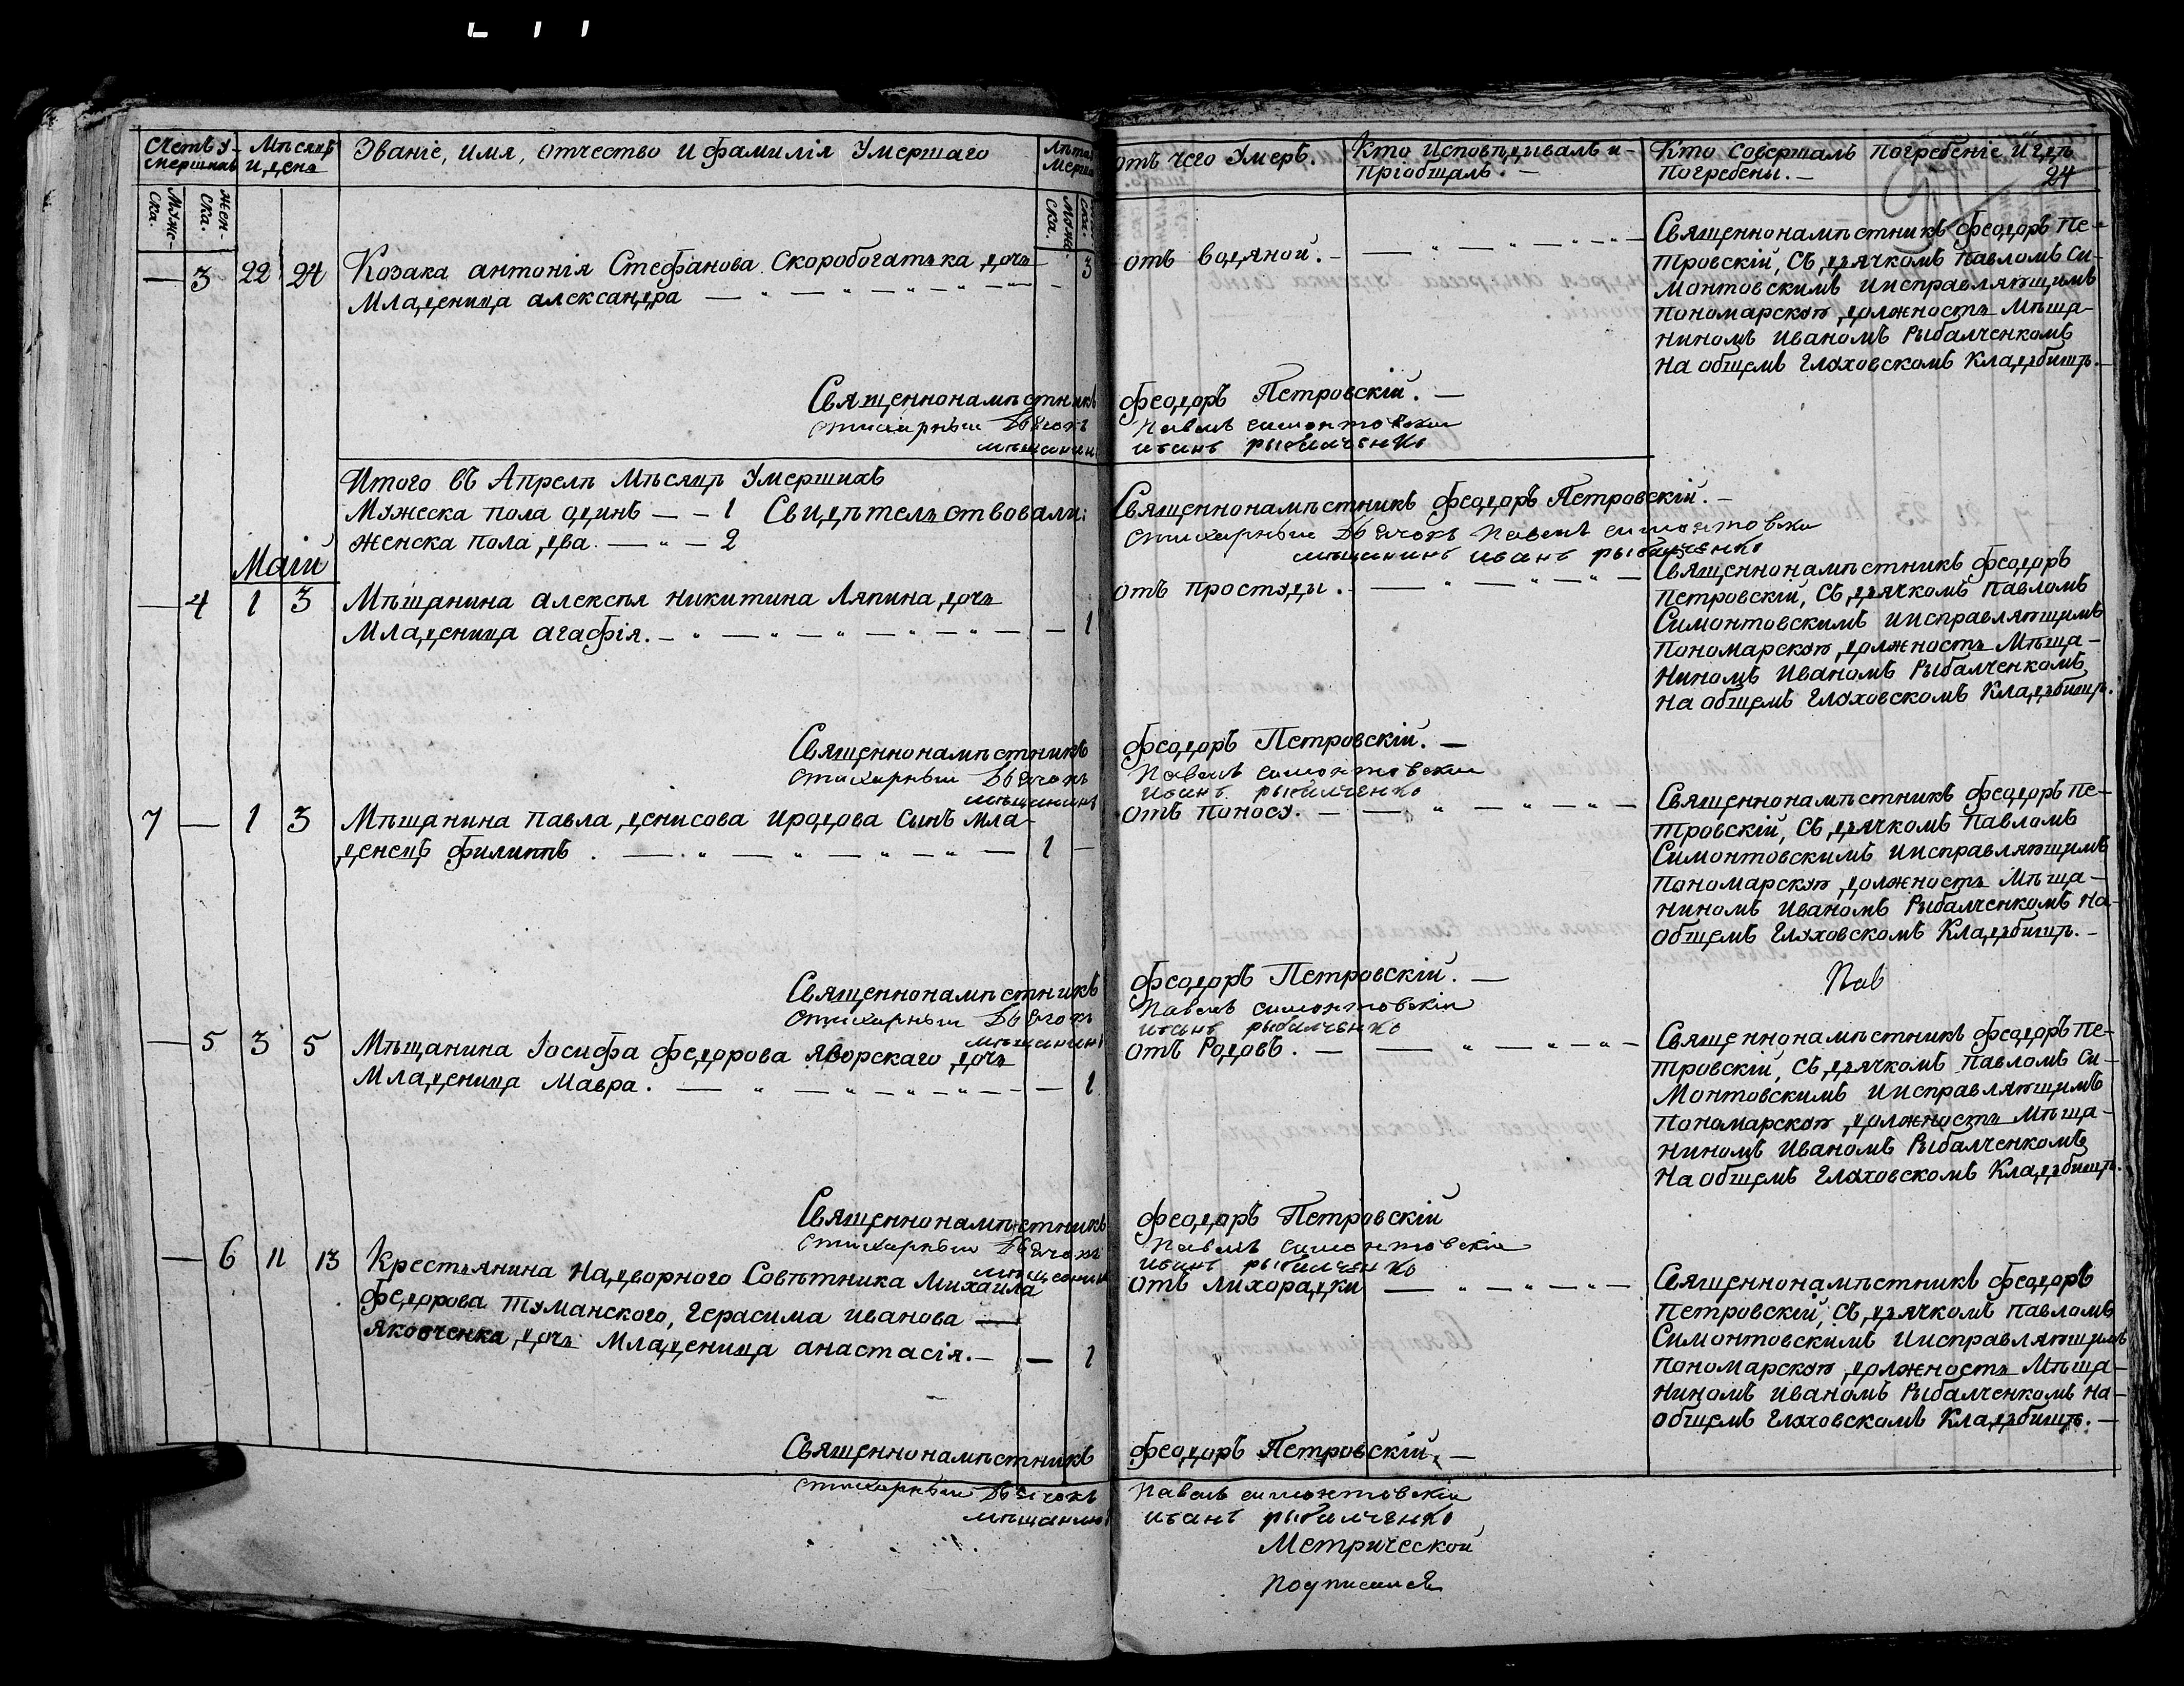 Счетъ у-
мершихъ
Мѣсяцъ
и день
Званіе, имя, отчество и фамилія Умершаго
Лѣта
Мерша
отъ чего Умеръ.
Кто исповѣдывалъ и
Пріобщалъ. —
Кто совершалъ погребеніе и гдѣ
погребены. —
24
Муже-
ска.
Жен-
ска.
Муже-
ска.
ска.
— 3 22 24 Козака антонія Стефанова Скоробогатька дочь — 3
Младеница александра — " — " — " — " —
отъ водяной. —
Священнонамѣстникъ феодоръ Пе-
тровскій, съ дьячкомъ павломъ Си-
монтовскимъ иисправляющимъ
пономарскою должность Мѣща-
ниномъ иваномъ Рыбалченкомъ
на общемъ глуховскомъ кладбищѣ. —
Священнонамѣстникъ феодоръ Петровскій. —
стихарный Дьячокъ Павелъ симонтовски
мѣщанинъ иванъ рыбалченко
Итого въ Апрелѣ Мѣсяцѣ Умершихъ
Мужеска пола одинъ — — 1 Свидѣтельствовали:
женска пола два. — " — 2
Священнонамѣстникъ феодоръ Петровскій. —
стихарный Дьячокъ Павелъ симонтовски
мѣщанинъ иванъ рыбалченко
Маій
— 4 1 3 Мѣщанина алексѣя никитина Ляпина дочь
Младеница агафія. — " — " — " — " — — 1
отъ простуды. —
Священнонамѣстникъ феодоръ
Петровскій, съ дьячкомъ павломъ
Симонтовскимъ иисправляющимъ
пономарскою должность Мѣща-
ниномъ иваномъ Рыбалченкомъ
на общемъ глуховскомъ кладбищѣ.
Священнонамѣстникъ феодоръ Петровскій. —
стихарный Дьячокъ Павелъ симонтовски
мѣщанинъ иванъ рыбалченко
7 — 1 3 Мѣщанина павла денисова иродова сынъ мла-
денецъ филиппъ. — " — " — " — " — 1 —
отъ поносу. —
Священнонамѣстникъ феодоръ Пе-
тровскій, съ дьячкомъ павломъ
Симонтовскимъ иисправляющимъ
пономарскою должность Мѣща-
ниномъ иваномъ Рыбалченкомъ на
общемъ глуховскомъ кладбищѣ. —
Пав
Священнонамѣстникъ феодоръ Петровскій. —
стихарный Дьячокъ Павелъ симонтовски
мѣщанинъ иванъ рыбалченко
— 5 3 5 Мѣщанина Іосифа федорова яворскаго дочь
Младеница Мавра. — " — " — " — " — — 1
отъ Родовъ. —
Священнонамѣстникъ феодоръ Пе-
тровскій, съ дьячкомъ павломъ Си-
монтовскимъ иисправляющимъ
пономарскою должность Мѣща-
ниномъ иваномъ Рыбалченкомъ
на общемъ глуховскомъ кладбищѣ.
Священнонамѣстникъ феодоръ Петровскій
стихарный Дьячокъ Павелъ симонтовски
мѣщанинъ иванъ рыбалченко
— 6 11 13 Крестьянина надворного Совѣтника Михаила
федорова туманского, герасима иванова —
яковченка дочь младеница анастасія. — — 1
отъ лихорадки
Священнонамѣстникъ феодоръ
Петровскій, съ дьячкомъ павломъ
Симонтовскимъ иисправляющимъ
пономарскою должность Мѣща-
ниномъ иваномъ Рыбалченкомъ на-
общемъ глуховскомъ кладбищѣ. —
Священнонамѣстникъ феодоръ Петровскій. —
стихарный Дьячокъ Павелъ симонтовски
мѣщанинъ иванъ рыбалченко
Метрической
подписался